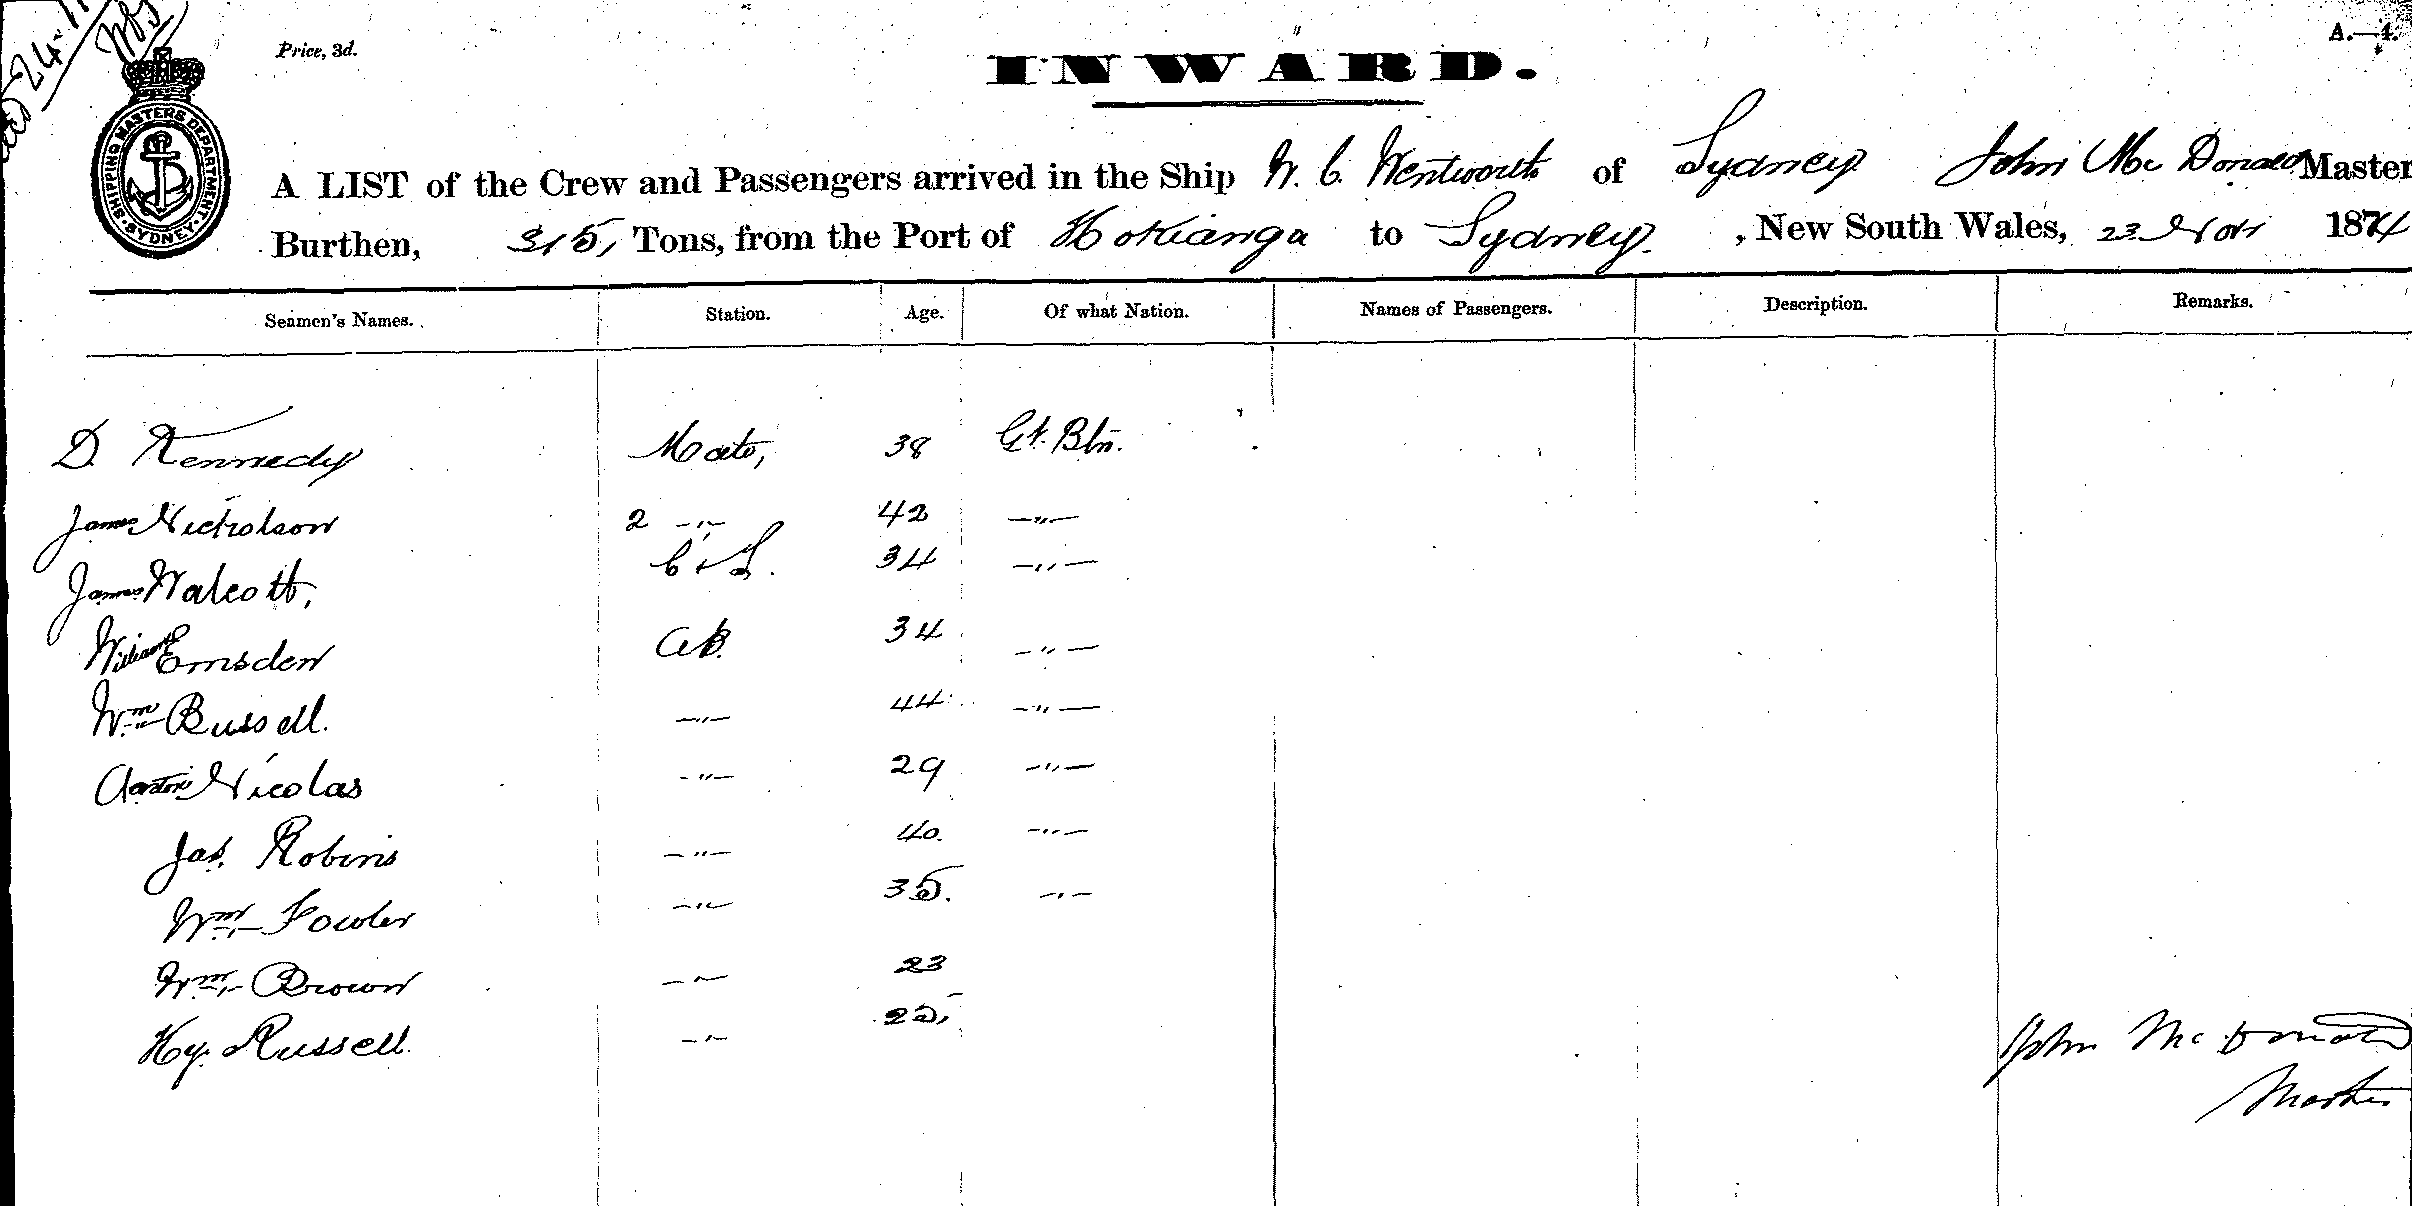 24-11
Price, 3d.
A.—4.
INWARD.
SHIPPING MASTERS DEPARTMENT · SYDNEY ·
A LIST of the Crew and Passengers arrived in the Ship W. C. Wentworth of Sydney John Mc Donald Master
Burthen, 315, Tons, from the Port of Hokianga to Sydney. , New South Wales, 23 Nov 1874
Seamen's Names. Station. Age. Of what Nation. Names of Passengers. Description. Remarks.
D. Kennedy Mate, 38 Gt. Btn.
James Nicholson 2 -"- 42 -"-
James Walcott, C & S. 34 -"-
William Emsden AB. 34 -"-
Wm Bussell. -"- 44 -"-
Nicolas -"- 29 -"-
Jas. Robins -"- 40. -"-
Wm Fowler -"- 35. -"-
Wm Brown -"- 23
Hy. Russell. -"- 25,
John McDonald
Master